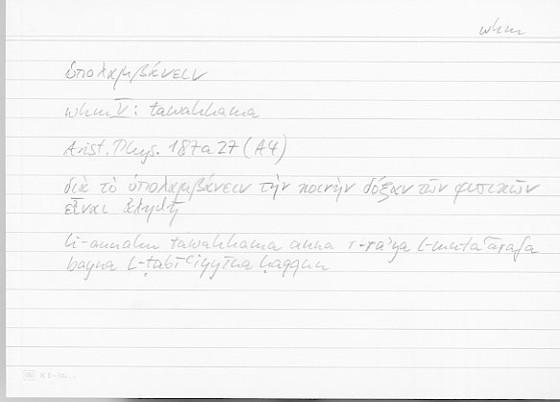 whm
ὑπολαμβάνειν
whm V: tawahhama
Arist. Phys. 187a27 (A4)
διὰ τὸ ὑπολαμβάνειν τὴν κοινὴν δόξαν τῶν φυσικῶν
εἶναι ἀληθῆ
li-annahu tawahhama anna r-raʾya l-mutaʿārafa
bayna ṭ-ṭabīʿiyyīna ḥaqqun